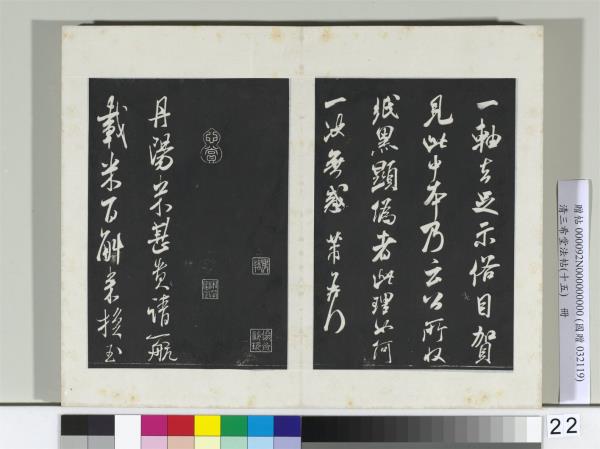 一軸馬足示俗目賀
見此中本乃云公所收
紙黑顯偽者此理如何
一決無惑 芾頓首
丹陽米甚貴請一航
載米百斛來換玉
贈帖 000092N000000000 (國贈 032119)
清三希堂法帖(十五) 冊
22